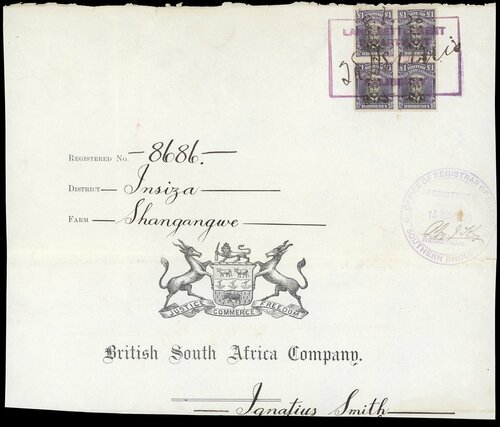 £1 £1
RHODESIA RHODESIA
£1 £1
RHODESIA RHODESIA
REGISTERED NO. — 8686. —
DISTRICT — Insiza —
FARM — Shangangwe —
OFFICE OF REGISTRAR OF
REGISTERED
REGISTRAR
SOUTHERN RHOD
JUSTICE COMMERCE FREEDOM
British South Africa Company.
Ignatius Smith